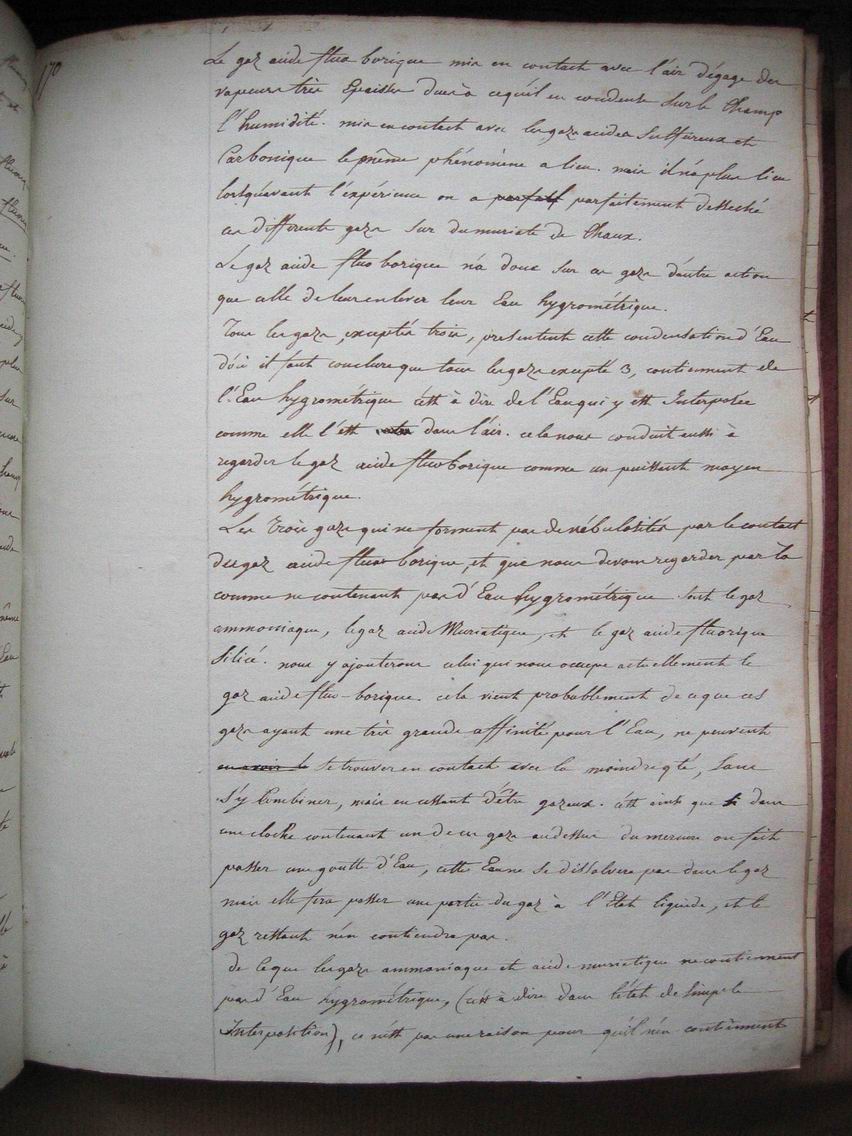 170
Le gaz acide fluo borique mis en contact avec l'air dégage des
vapeurs très Epaisses dues à cequ'il en condente sur le Champ
l'humidité. mis en contact avec les gazs acides Sulfureux et
Carbonique le même phénomène a lieu. mais il n'a plus lieu
lorsqu'avant l'expérience on a parfait parfaitement desseché
ces differents gazs sur du muriate de Chaux.
Le gaz acide fluo borique n'a donc sur ces gazs d'autre action
que celle de leur enlever leur Eau hygrométrique.
Tous les gazs, exceptés trois, presentent cette condensation d'Eau
d'où il faut conclure que tous les gazs excepté 3, contiennent de
l'Eau hygrométrique c'est à dire de l'Eau qui y est Interposée
comme elle l'est dans l'air. cela nous conduit aussi à
regarder le gaz acide fluo borique comme un puissant moyen
hygrométrique.
Les trois gazs qui ne forment pas de nébulosités par le contact
du gaz acide fluo borique, et que nous devons regarder par là
comme ne contenant pas d'Eau hygrométrique sont le gaz
ammoniaque, le gaz acide Muriatique, et le gaz acide fluorique
silicé. nous y ajouterons celui qui nous occupe actuellement le
gaz acide fluo-borique. cela vient probablement de ce que ces
gazs ayant une très grande affinité pour l'Eau, ne peuvent
en avoir le se trouver en contact avec la moindre qté, sans
s'y Combiner, mais en cessant d'être gazeux. c'est ainsi que si dans
une cloche contenant un de ces gazs audessus du mercure on fait
passer une goutte d'Eau, cette Eau ne se dissolvera pas dans le gaz
mais elle fera passer une partie du gaz à l'Etat liquide, et le
gaz restant n'en contiendra pas.
de ce que les gazs ammoniaque et acide muriatique ne contiennent
pas d'Eau hygrométrique, (c'est à dire dans l'état de simple
Interposition), ce n'est pas une raison pour qu'il n'en contiennent